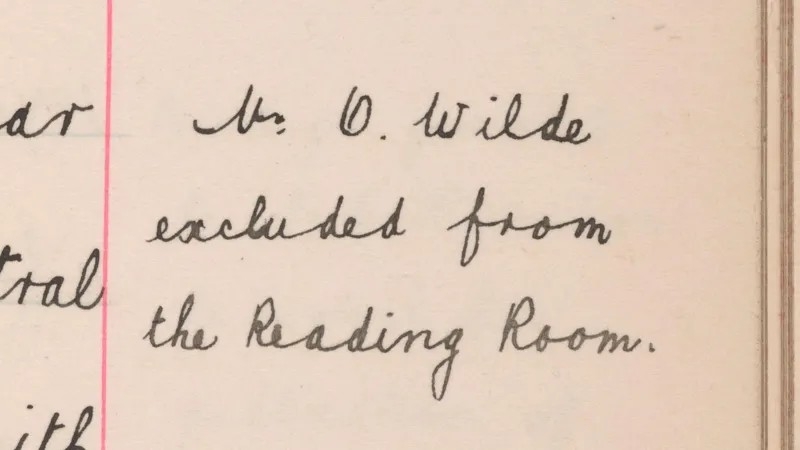 ar Mr. O. Wilde
excluded from
tral
the Reading Room.
ith